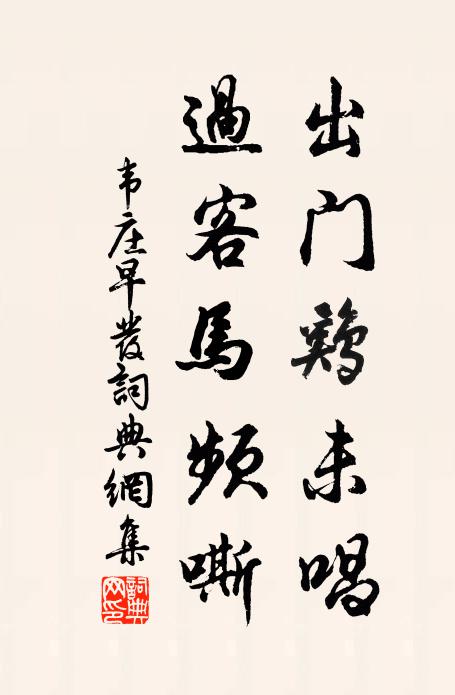 出门鷄未唱
過客馬頻嘶
韦庄早發詞典網集
詞典网印